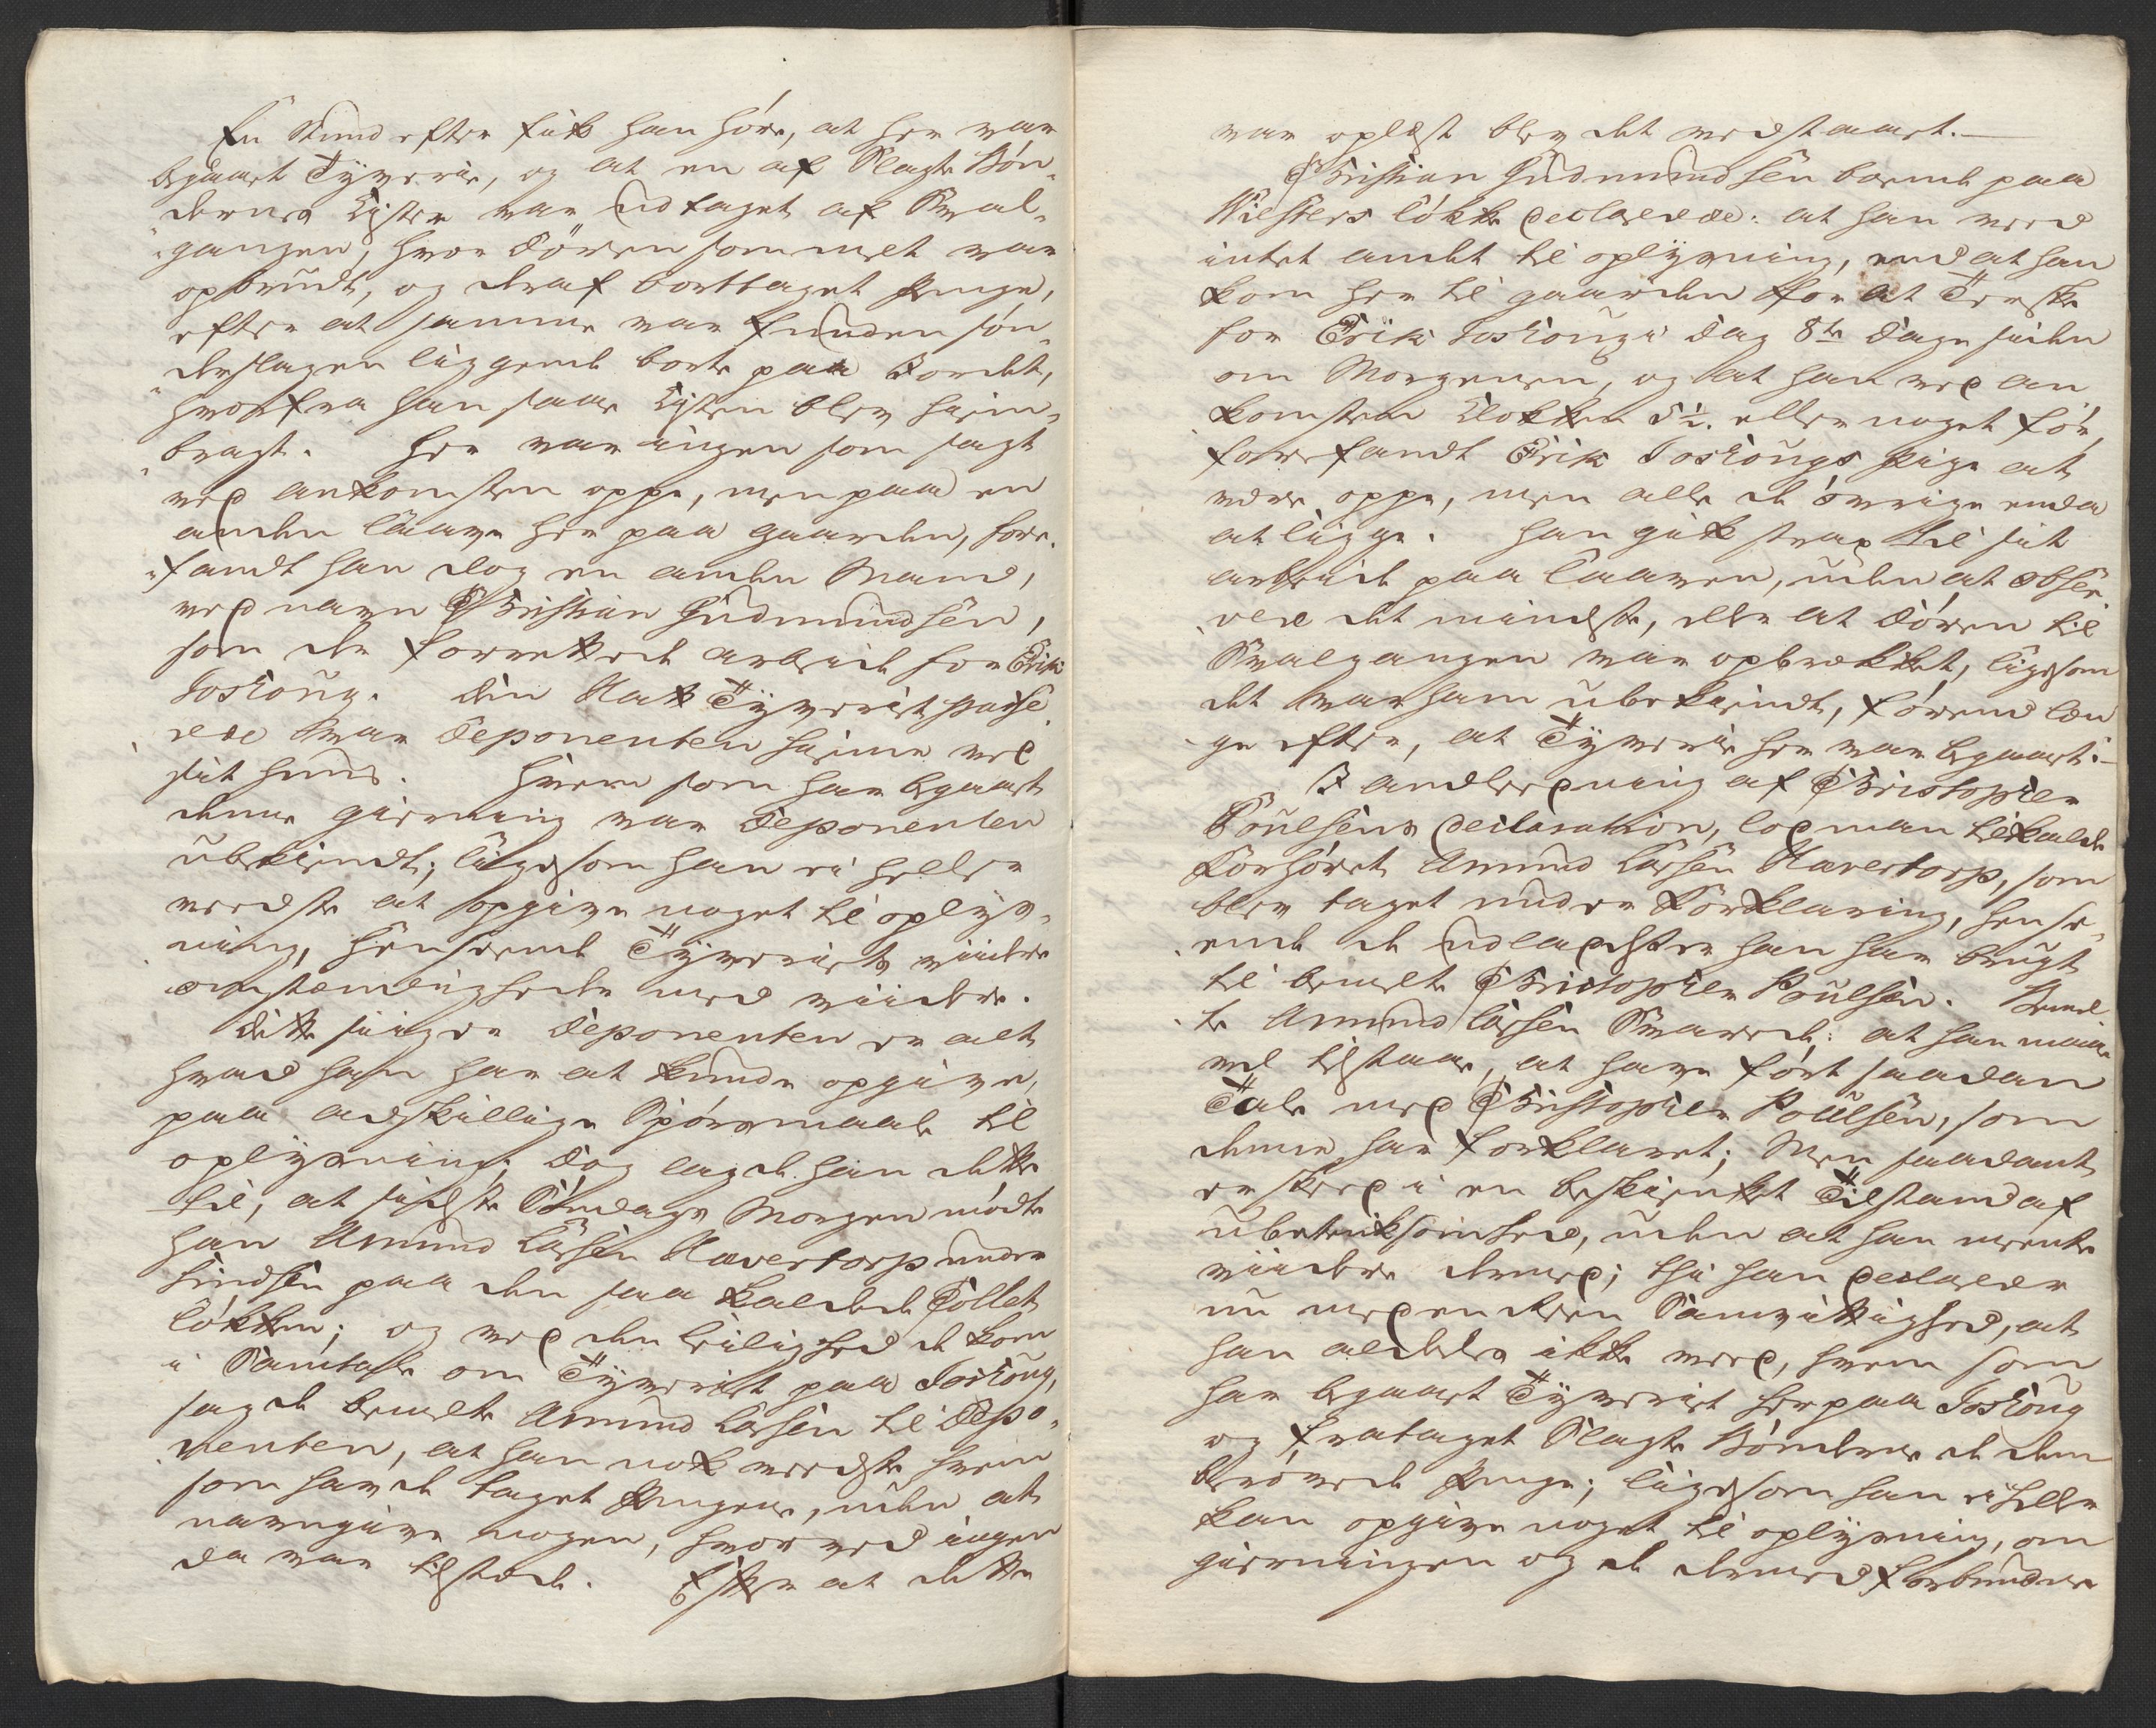 En Stund efter fik han høre, at her var
begaaet Tyverie, og at en af Slagte Bøn¬
dernes Kister var udtaget af Sval¬
gangen, hvor Døren sommelt var
opbrudt, og deraf borttaget Penge,
efter at samme var funden søn¬
derslagen liggende borte paa Jordet,
hvorfra han saae Kisten blev hjem¬
bragt. Her var ingen som sagt
ved ankomsten oppe, men paa en
anden Laave her paa gaarden, fore¬
fandt han dog en anden Mand,
ved navn Christian Gudmundsen,
som der forrettede arbeide for Erik
Toskoug. Den Natt Tyveriet passe¬
rede var Deponenten hjemme ved
sit huus. Hvem som har begaaet
denne gierning var Deponenten
ubekiendt, ligesom han ei heller
veedste at opgive noget til oplys¬
ning, henseende Tyveriets viidere
omstændigheder med viidere.
Dette siiger Deponenten er alt
hvad han har at kunde opgive,
paa adskillige Spørsmaale til
oplysning; dog lagde han dette
til, at sidste Søndags Morgen mødte
han Amund Larsen Haverstorp under
hindsen paa den saa kaldede Tollets
løkken; og ved den leilighed de kom
i Samtale om Tyveriet paa Toskoug,
sagde bemelte Amund Larsen til Depo¬
nenten, at han nok veedste hvem
som havde taget Pengene, uden at
navngive nogen, hvorved ingen
da var tilstæde. Efter at dette
var oplæst blev det vedstaaet.
Christian Gudmundsen boende paa
løkke declarede: at han veed
intet andet til oplysning, end at han
kom her til gaarden for at Terske
for Erik Toskoug i dag 8te Dage siden
om Morgenen, og at han ved an¬
komsten Klokken 5½ eller noget før,
forefandt Erik Toskougs Pige at
være oppe, men alle de øvrige enda
at ligge. Han gik strax til sit
arbeide paa Laaven, uden at obser¬
vere det mindste, eller at Døren til
Svalgangen var opbrækket, ligesom
det var ham ubekiendt, førend læn
ge efter, at Tyverie her var begaaet.
I anledning af Christopher
Poulsens Declaration, lod man tilkalde
Forhøret Amund Larsen Haverstorp, som
blev taget under Forklaring, hense¬
ende de udladelser han har brugt
til bemelte Christopher Poulsen. Bemel
te Amund Larsen Svarede: at han maae
vel tilstaae, at have ført saadan
Tale med Christopher Poulsen, som
denne har forklaret; Men saadant
er skeed i en beskienket Tilstand af
ubetænksomhed, uden at han meente
viidere dermed; thi han declarer
nu med en Reen Samvittighed, at
han aldeles ikke veed, hvem som
har begaaet Tyveriet her paa Toskoug
og frataget Slagte Bønderne de dem
berøvede Penge; ligesom han ei heller
kan opgive noget til oplysning, om
gierningen og de dermed forbundne